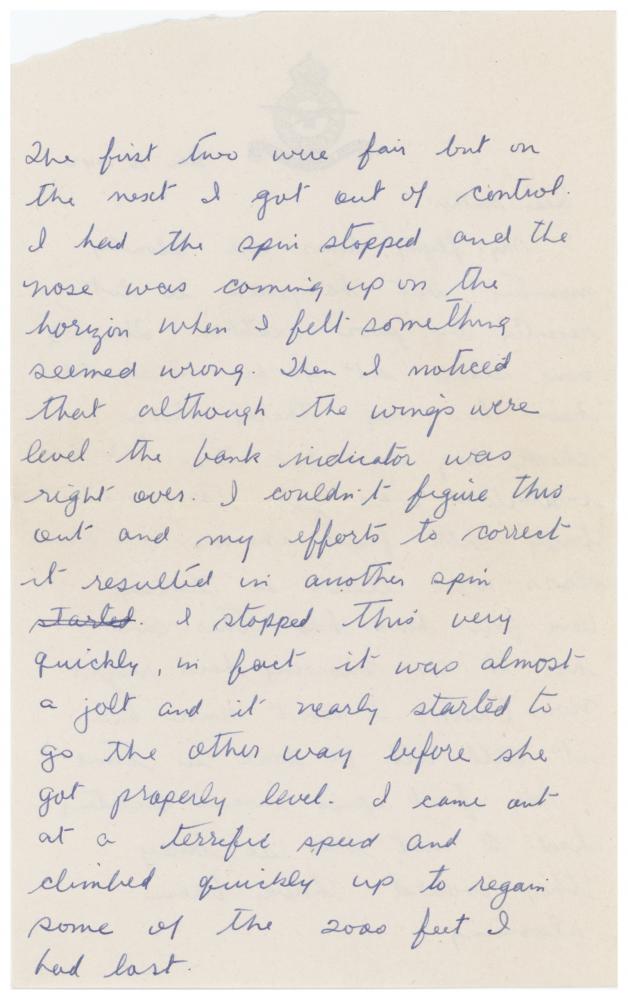 The first two were fair but on
the next I got out of control.
I had the spin stopped and the
nose was coming up on the
horizon when I felt something
seemed wrong. Then I noticed
that although the wings were
level the bank indicator was
right over. I couldn't figure this
out and my efforts to correct
it resulted in another spin
started. I stopped this very
quickly, in fact it was almost
a jolt and it nearly started to
go the other way before she
got properly level. I came out
at a terrific speed and
climbed quickly up to regain
some of the 2000 feet I
had lost.